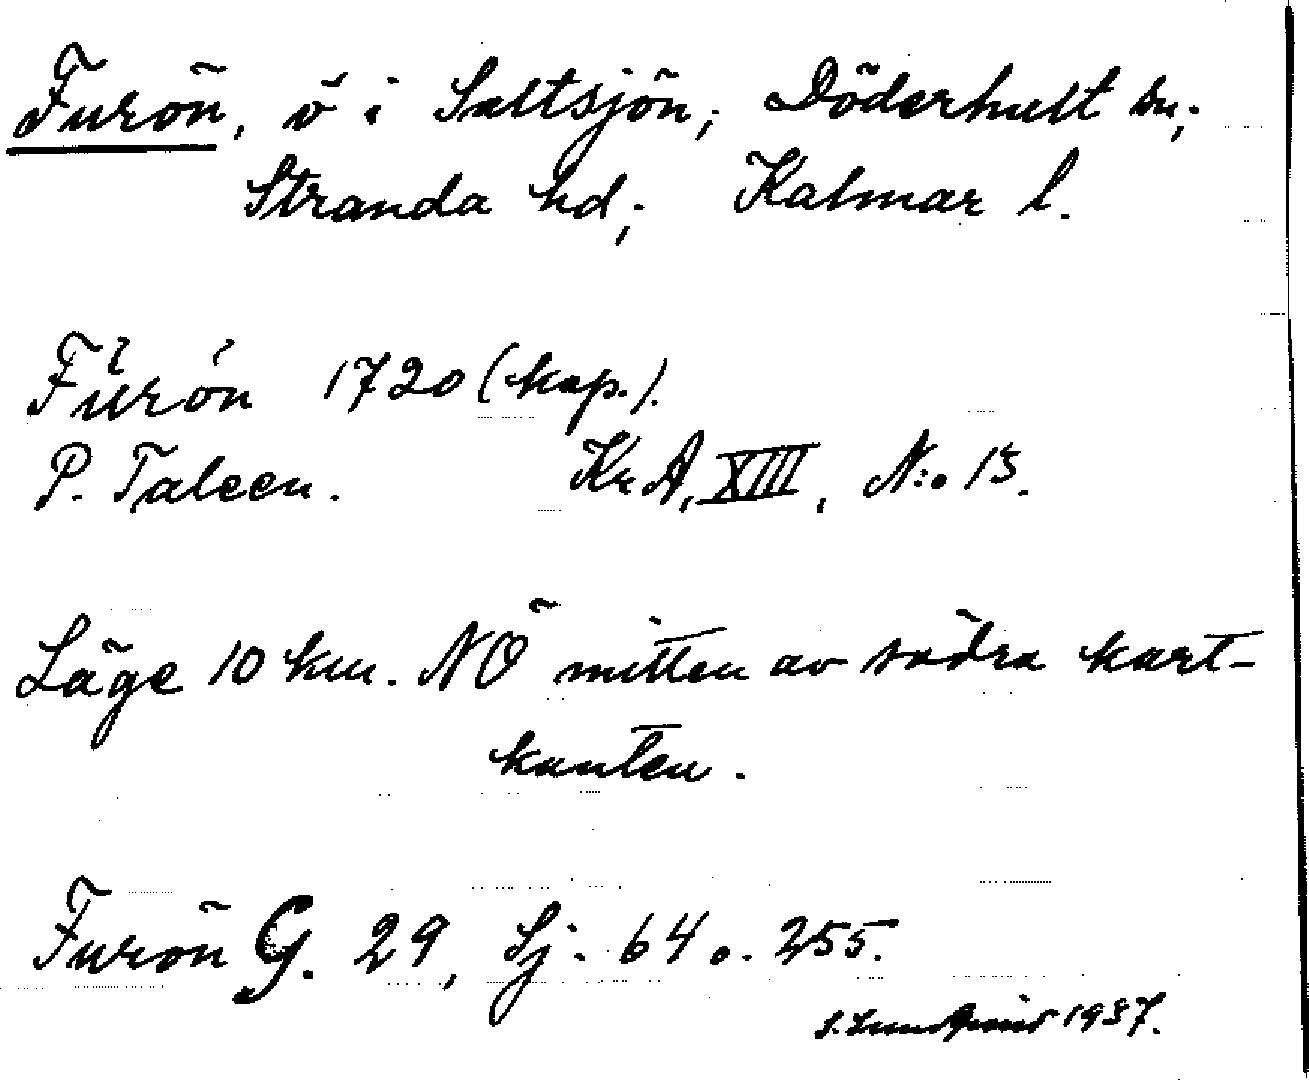 Furön, ö i Saltsjön; Döderhult sn;
Stranda hd; Kalmar l.
Furön 1720 (kop.).
P. Taleen. Kr A, XIII, N:o 13.
Läge 10 km. NÖ mitten av södra kart-
kanten.
Furön G. 29, Sj. 64 o. 255.
S. Lundquist 1937.